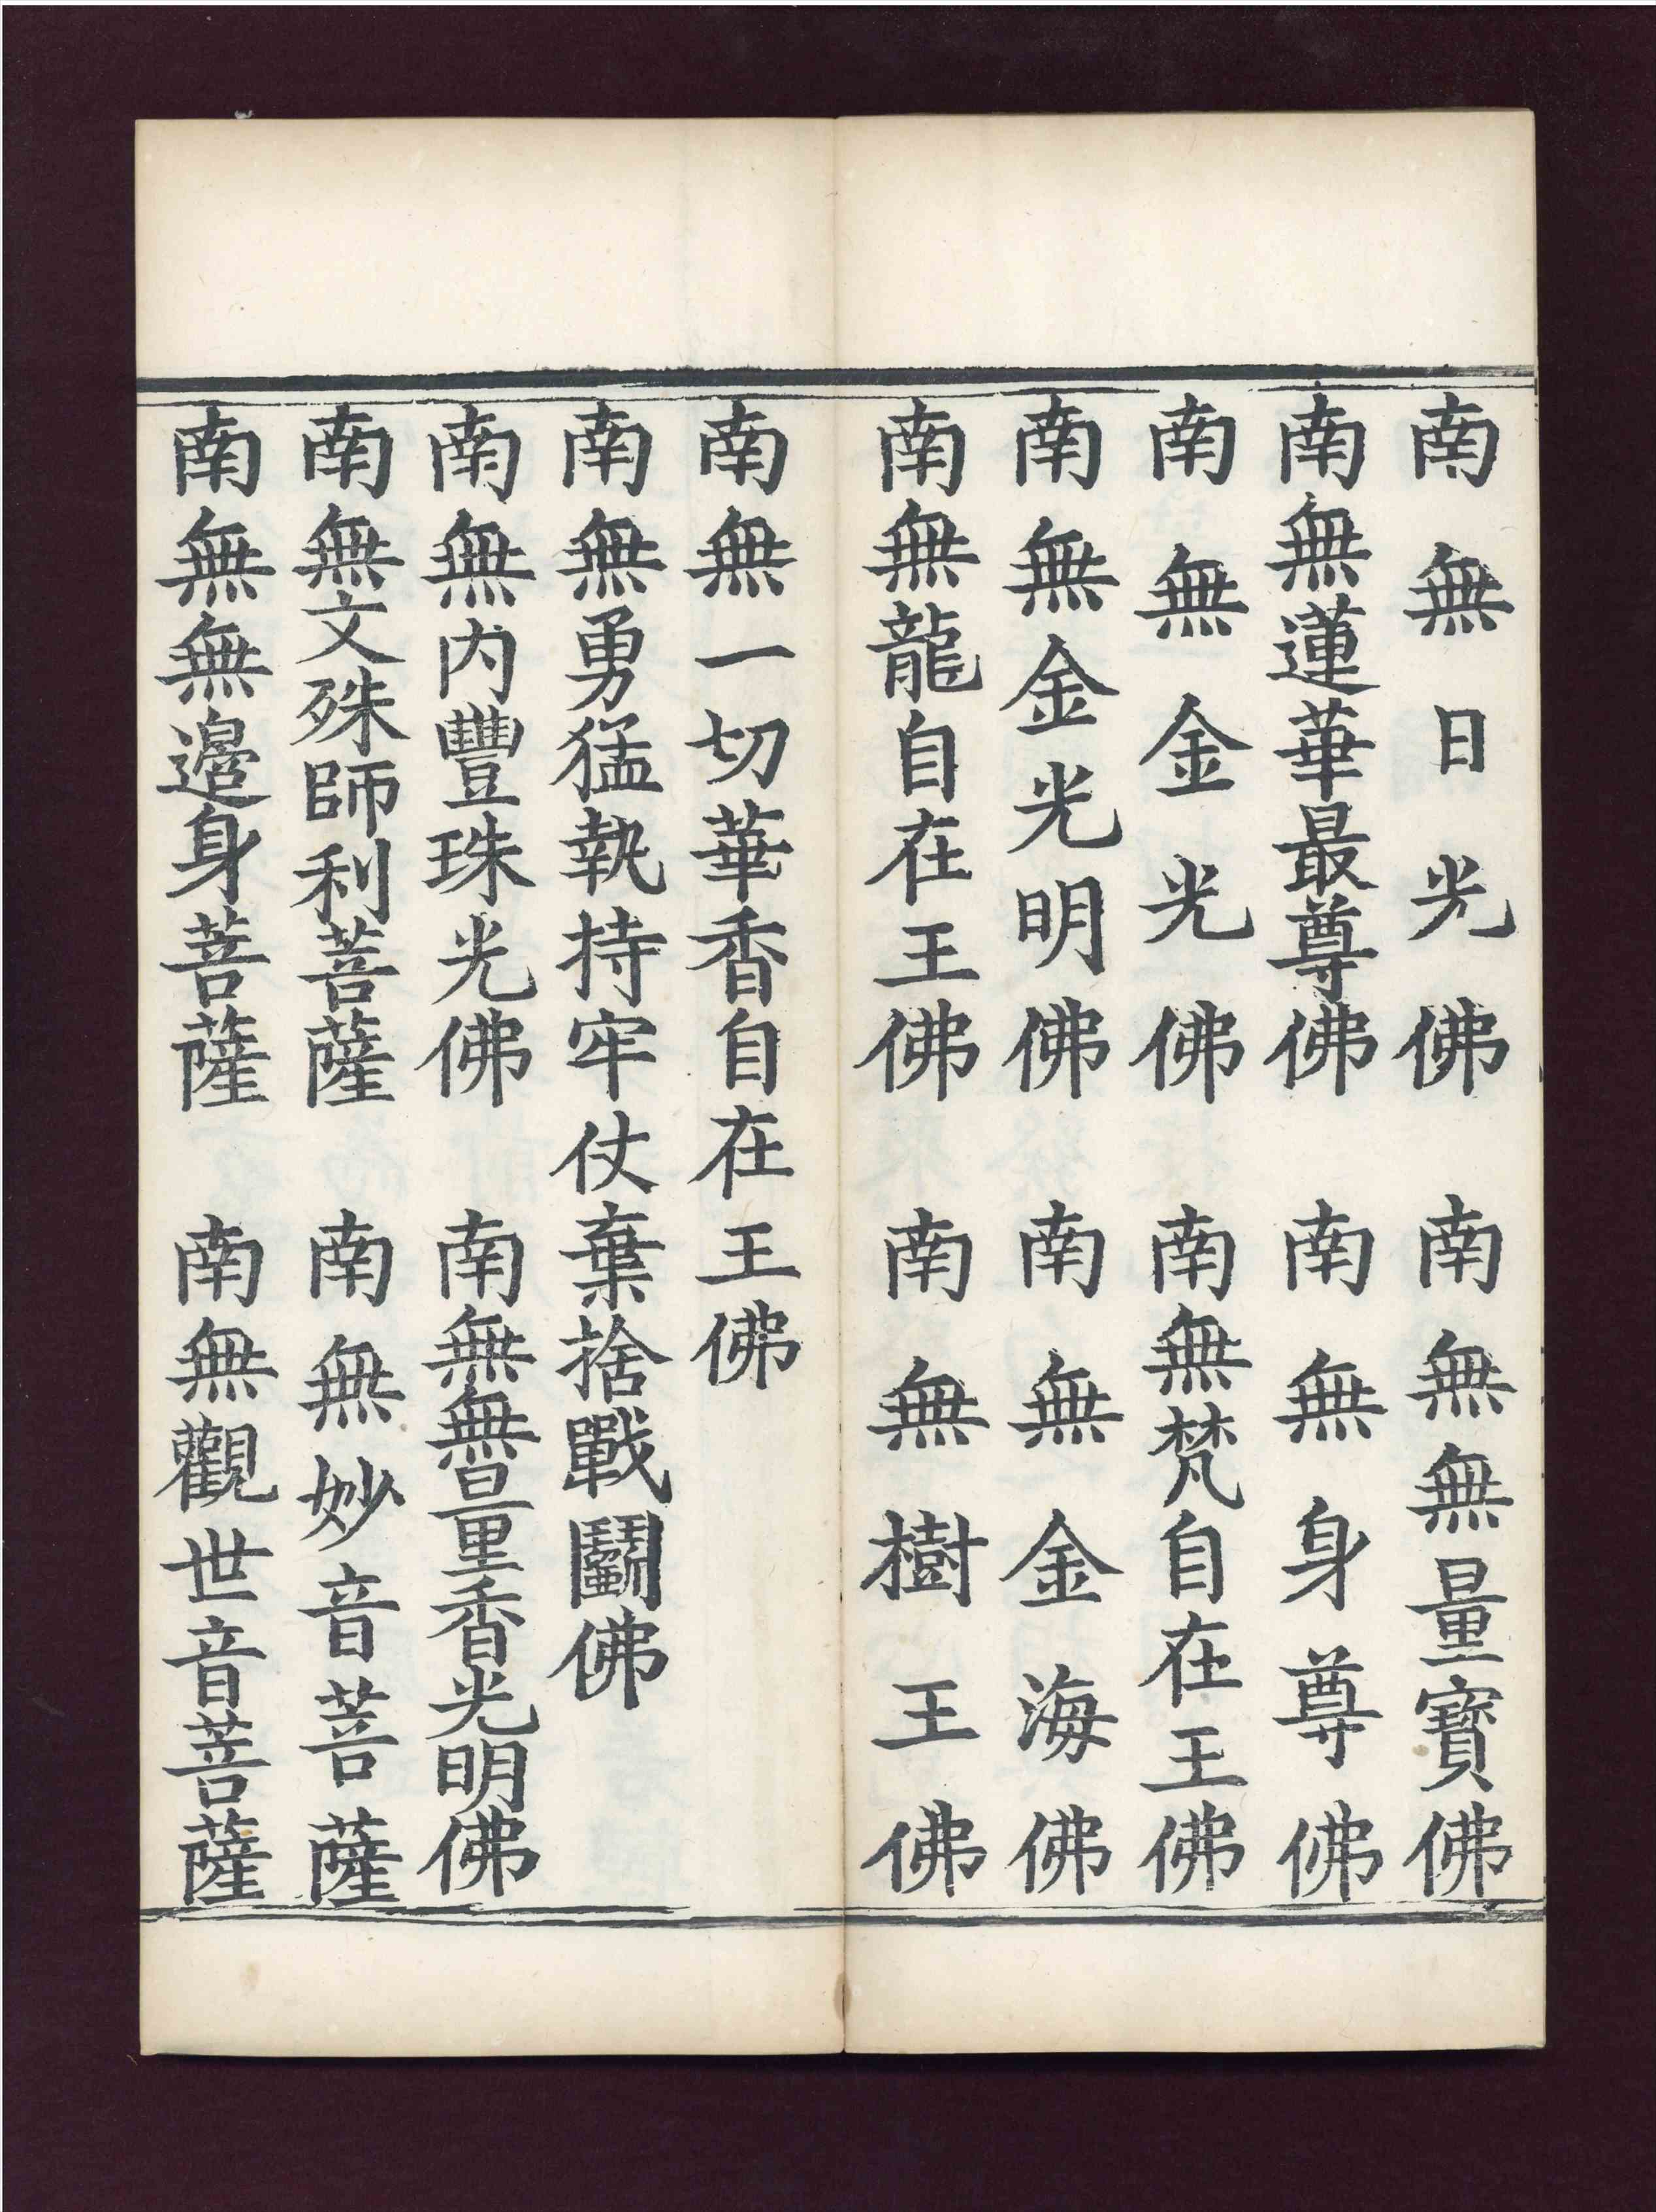 南無日光佛　南無無量寶佛
南無蓮華最尊佛　南無身尊佛
南無金光佛　南無梵自在王佛
南無金光明佛　南無金海佛
南無龍自在王佛　南無樹王佛
南無一切華香自在王佛
南無勇猛執持牢仗棄捨戰鬪佛
南無内豐珠光佛　南無無量香光明佛
南無文殊師利菩薩　南無妙音菩薩
南無無邊身菩薩　南無觀世音菩薩